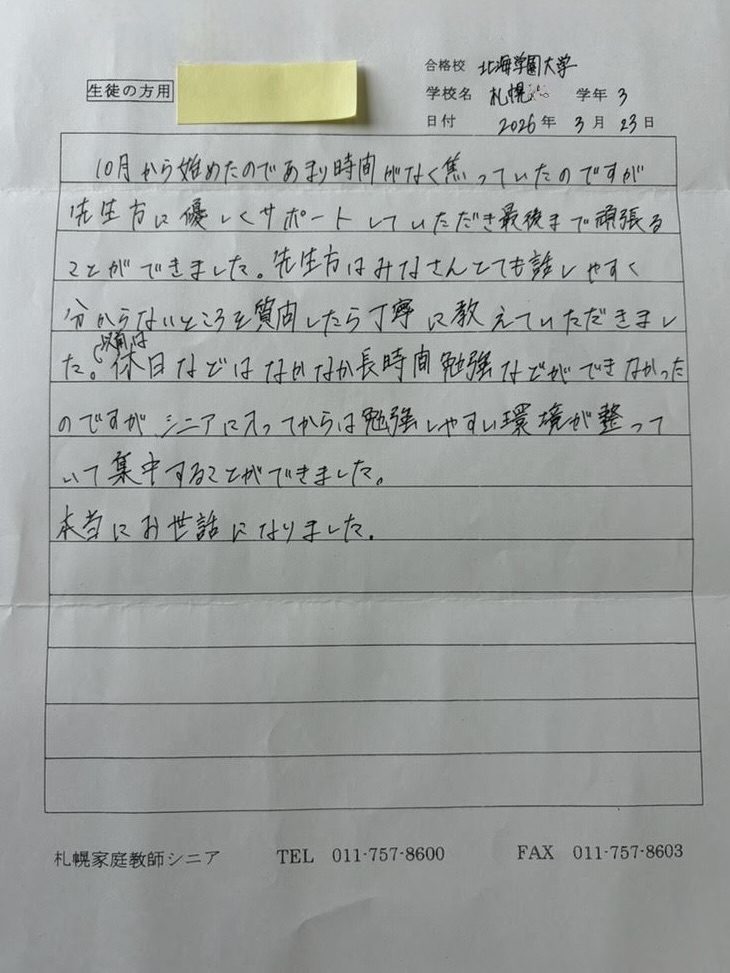 合格校 北海学園大学
生徒の方用
学校名 札幌 学年 3
日付 2026年 3月 23日
10月から始めたのであまり時間がなく焦っていたのですが
先生方に優しくサポートしていただき最後まで頑張る
ことができました。先生方はみなさんとても話しやすく
分からないところを質問したら丁寧に教えていただきまし
以前は
た。休日などはなかなか長時間勉強などができなかった
のですが、シニアに入ってからは勉強しやすい環境が整って
いて集中することができました。
本当にお世話になりました。
札幌家庭教師シニア TEL 011-757-8600 FAX 011-757-8603